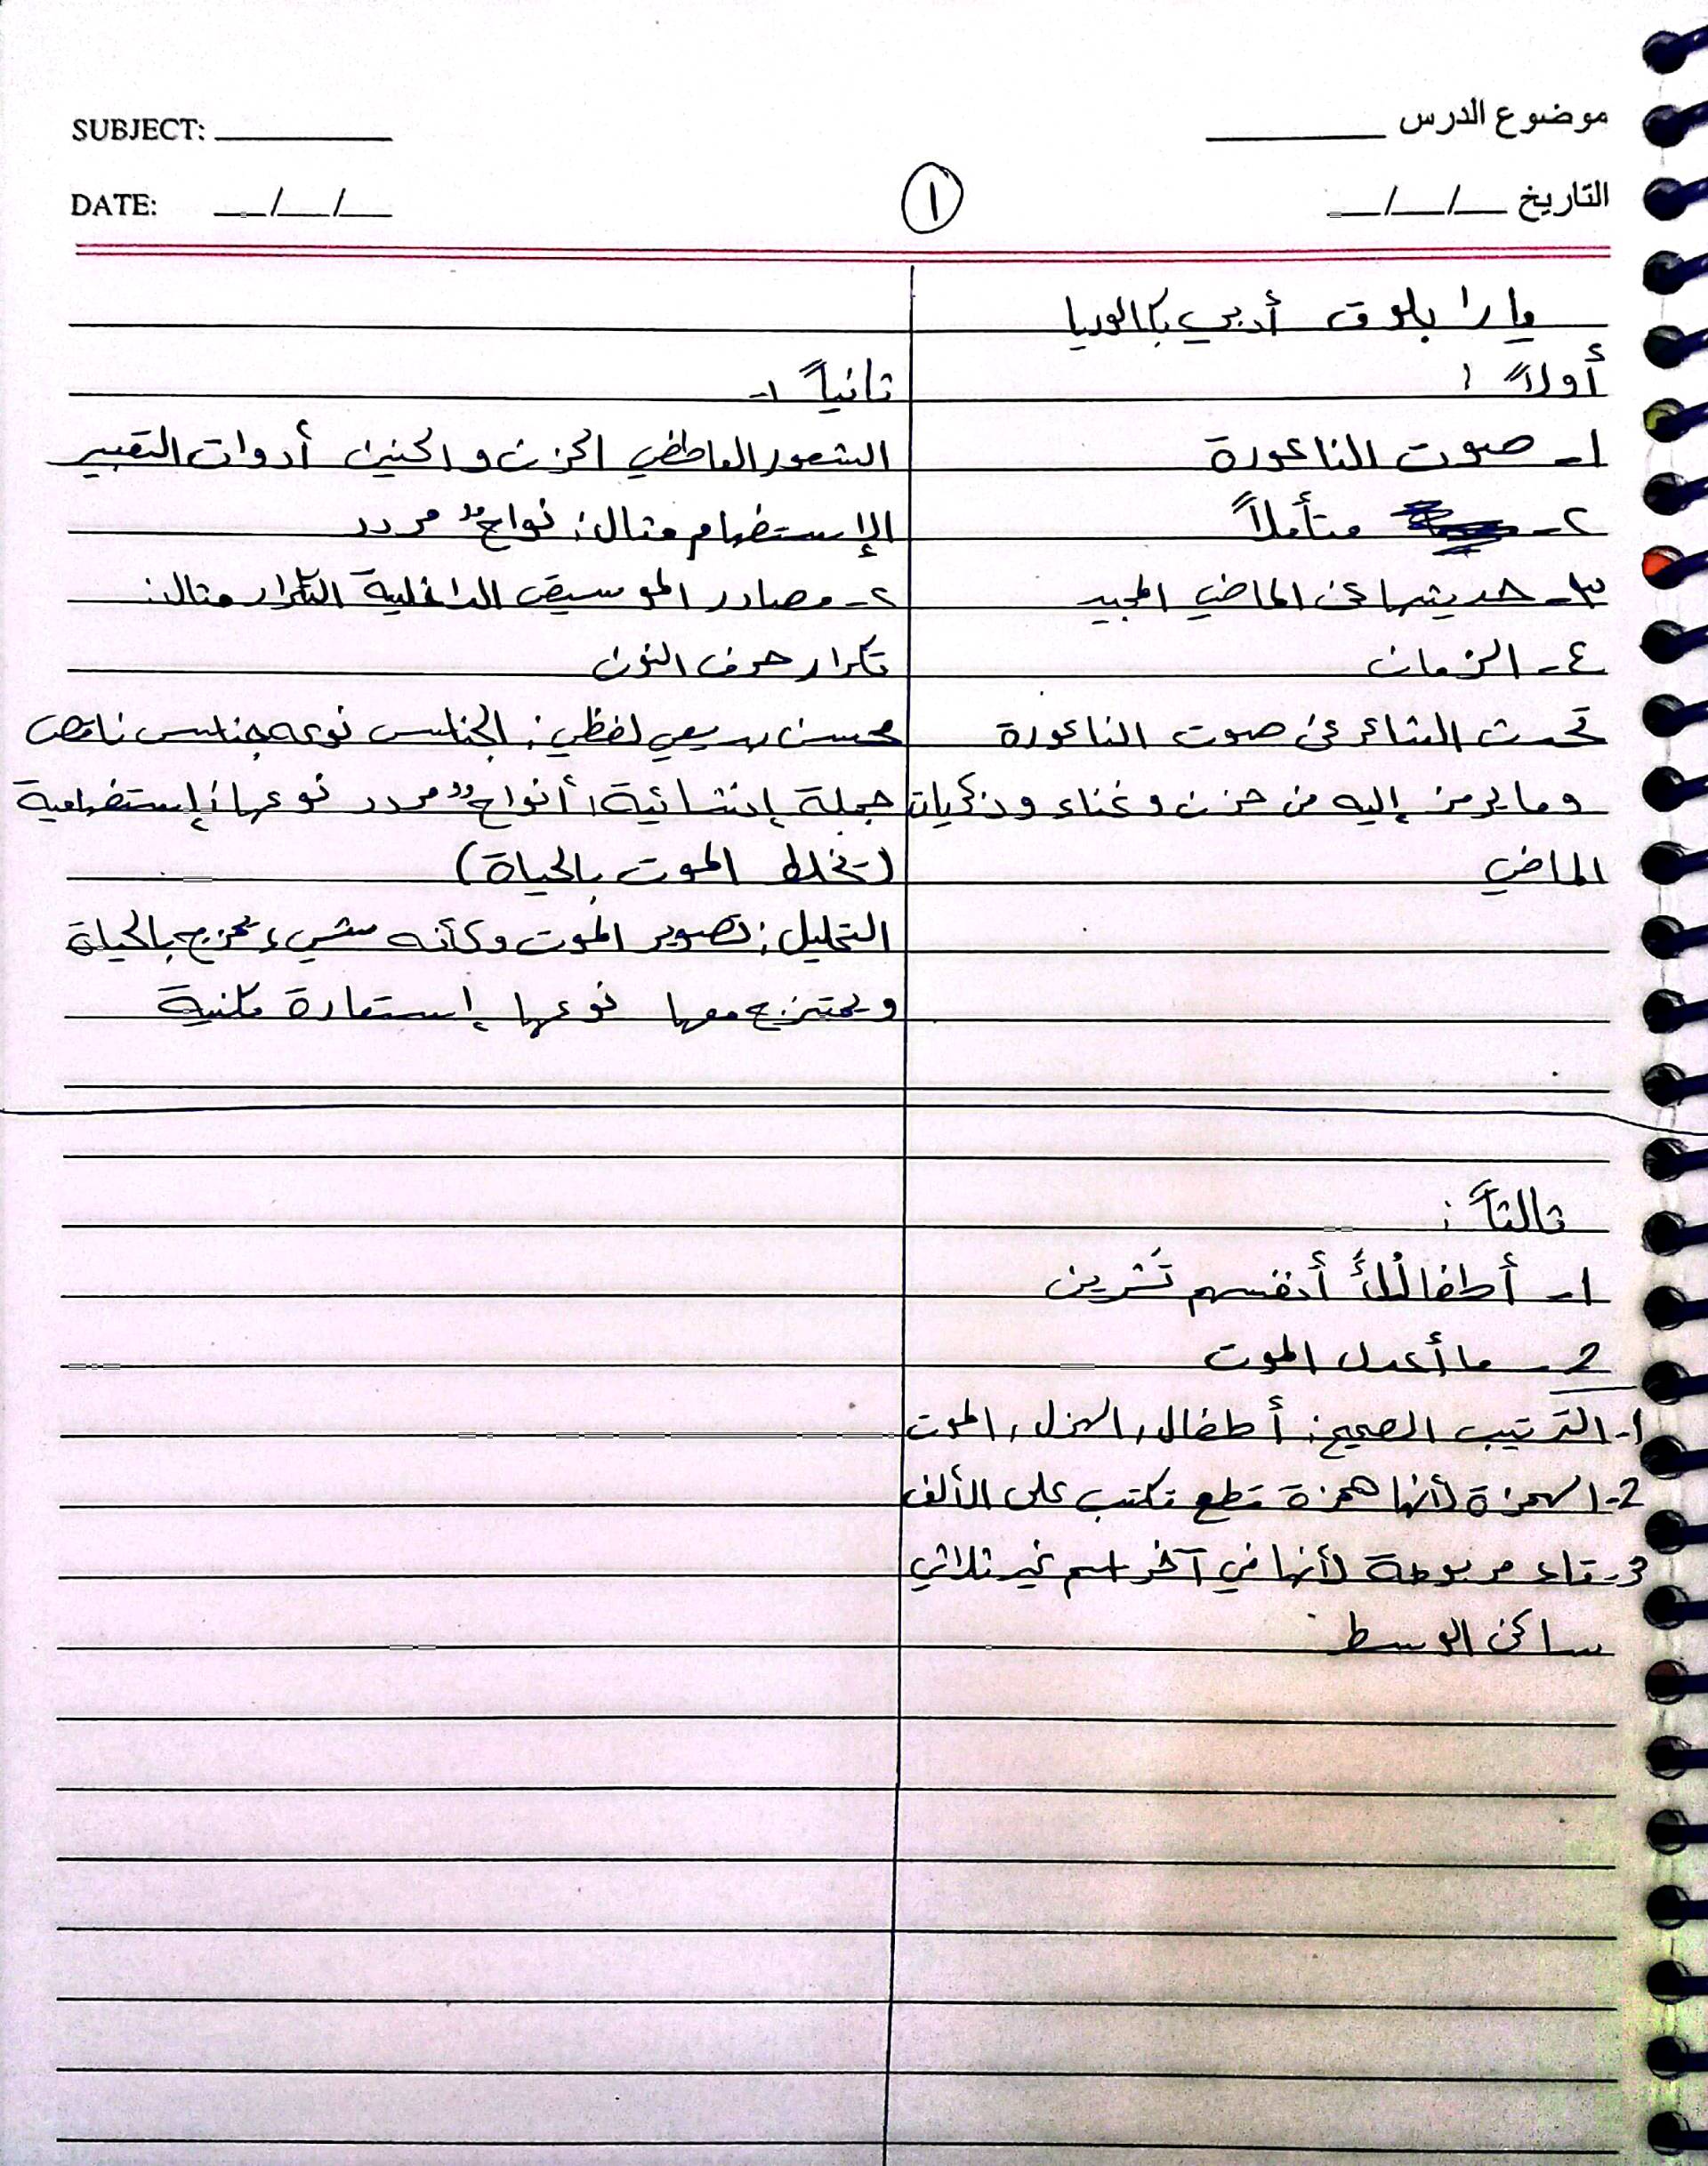 موضوع الدرس
SUBJECT:
التاريخ __/__/__
DATE: __/__/__
١
يارا بلوق أدبي بكالوريا
أولاً :
١- صوت الناعورة
٢- متأملاً
٣- حديثها عن الماضي المجيد
٤- الزمان
تحدث الشاعر عن صوت الناعورة
وما يرمز إليه من حزن وغناء وذكريات
الماضي
ثانياً ١-
الشعور العاطفي الحزن والحنين أدوات التعبير
الإستفهام مثال: نواحٌ مردد
٢- مصادر الموسيقى الداخلية التكرار مثال:
تكرار حرف النون
محسن بديعي لفظي: الجناس نوعه جناس ناقص
جملة إنشائية: أنواحٌ مردد نوعها: إستفهامية
(تخلط الموت بالحياة)
التحليل: تصوير الموت وكأنه شيء يمزج بالحياة
ويمتزج معها نوعها إستعارة مكنية
ثالثاً :
١- أطفالُكُ أنفسهم تَشرين
2- ما أعدل الموت
١- الترتيب الصحيح: أطفال, الهزل, الموت
2- الهمزة لأنها همزة قطع تكتب على الألف
3- تاء مربوطة لأنها في آخر اسم غير ثلاثي
ساكن الوسط